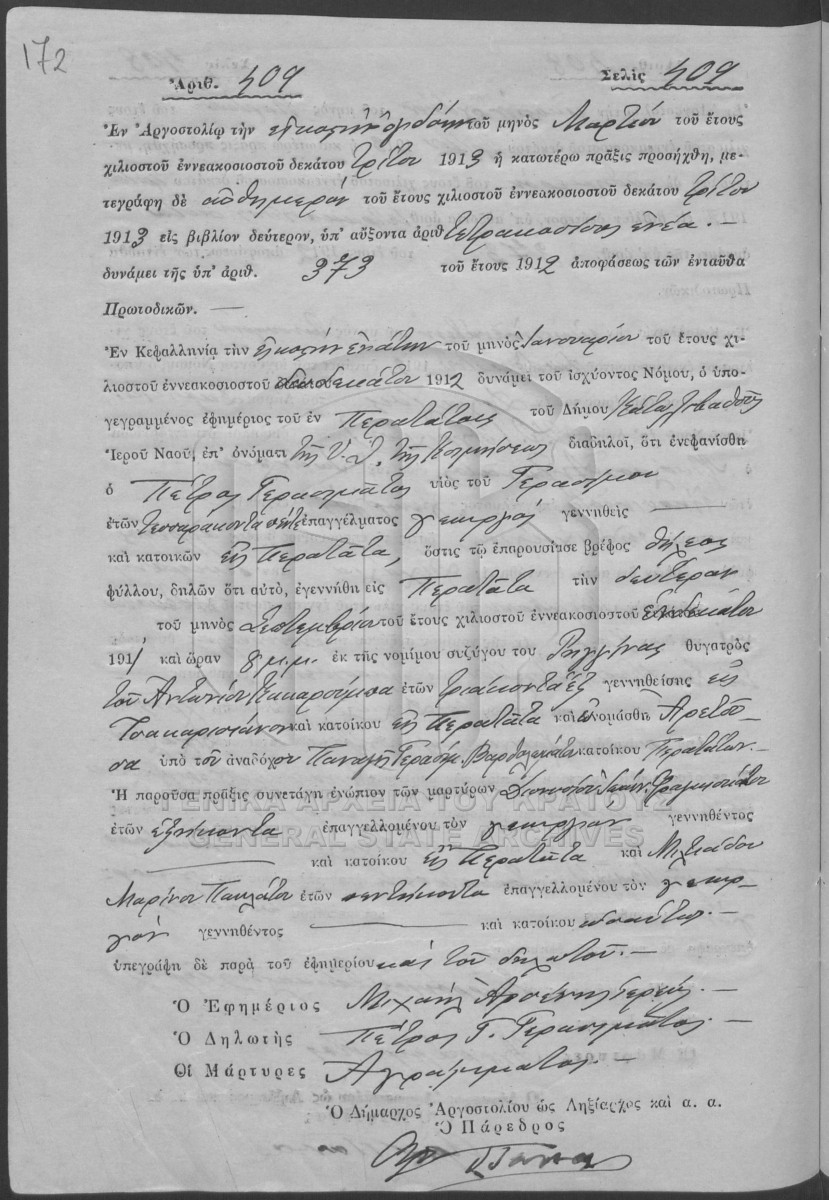 172
Ἀριθ. 409 Σελὶς 409
Ἐν Ἀργοστολίῳ τὴν εἰκοστὴν ὀγδόην τοῦ μηνὸς Μαρτίου τοῦ ἔτους
χιλιοστοῦ ἐννεακοσιοστοῦ δεκάτου τρίτου 1913 ἡ κατωτέρω πρᾶξις προσήχθη, με-
τεγράφη δὲ αὐθημερὸν τοῦ ἔτους χιλιοστοῦ ἐννεακοσιοστοῦ δεκάτου τρίτου
1913 εἰς βιβλίον δεύτερον, ὑπ' αὔξοντα ἀριθ τετρακόσια ἐννέα. —
δυνάμει τῆς ὑπ' ἀριθ. 373 τοῦ ἔτους 1912 ἀποφάσεως τῶν ἐνταῦθα
Πρωτοδικῶν. —
Ἐν Κεφαλληνίᾳ τὴν εἰκοστὴν ἐνάτην τοῦ μηνὸς Ἰανουαρίου τοῦ ἔτους χι-
λιοστοῦ ἐννεακοσιοστοῦ δωδεκάτου 1912 δυνάμει τοῦ ἰσχύοντος Νόμου, ὁ ὑπο-
γεγραμμένος ἐφημέριος τοῦ ἐν Περατάτοις τοῦ Δήμου
Ἱεροῦ Ναοῦ, ἐπ' ὀνόματι τῆς Υ. Θ. τῆς Κοιμήσεως διαδηλοῖ, ὅτι ἐνεφανίσθη
ὁ Πέτρος Γερασιμᾶτος υἱὸς τοῦ Γερασίμου
ἐτῶν τεσσαράκοντα πέντε ἐπαγγέλματος γεωργὸς γεννηθεὶς —
καὶ κατοικῶν εἰς Περατᾶτα, ὅστις τῷ ἐπαρουσίασε βρέφος θήλεος
φύλλου, δηλῶν ὅτι αὐτὸ, ἐγεννήθη εἰς Περατᾶτα τὴν δευτέραν
τοῦ μηνὸς Σεπτεμβρίου τοῦ ἔτους χιλιοστοῦ ἐννεακοσιοστοῦ ἑνδεκάτου
1911 καὶ ὥραν μ.μ. ἐκ τῆς νομίμου συζύγου του Ρηγγίνας θυγατρὸς
τοῦ Ἀντωνίου Κακαρούμπα ἐτῶν τριάκοντα ἓξ γεννηθείσης εἰς
Τσακαρισιάνον καὶ κατοίκου εἰς Περατᾶτα καὶ ὠνομάσθη Ἀρετοῦ-
σα ὑπὸ τοῦ ἀναδόχου Παναγῆ Γερασίμ. κατοίκου Περατάτων. —
Ἡ παροῦσα πρᾶξις συνετάγη ἐνώπιον τῶν μαρτύρων Διονυσίου Ἰωάν.
ἐτῶν ἑξήκοντα ἐπαγγελλομένου τὸν γεωργὸν γεννηθέντος
— καὶ κατοίκου εἰς Περατᾶτα καὶ Μιλτιάδου
Μαρίνου Παυλάτου ἐτῶν πεντήκοντα ἐπαγγελλομένου τὸν γεωρ-
γὸν γεννηθέντος — καὶ κατοίκου ὡσαύτως. —
ὑπεγράφη δὲ παρὰ τοῦ ἐφημερίου καὶ τοῦ δηλωτοῦ. —
Ὁ Ἐφημέριος Μιχαὴλ Ἀρσένης Ἱερεύς. —
Ὁ Δηλωτὴς Πέτρος Γ. Γερασιμᾶτος. —
Οἱ Μάρτυρες Ἀγράμματοι. —
Ὁ Δήμαρχος Ἀργοστολίου ὡς Ληξίαρχος καὶ α. α.
Ὁ Πάρεδρος
ΓΕΝΙΚΑ ΑΡΧΕΙΑ ΤΟΥ ΚΡΑΤΟΥΣ
GENERAL STATE ARCHIVES